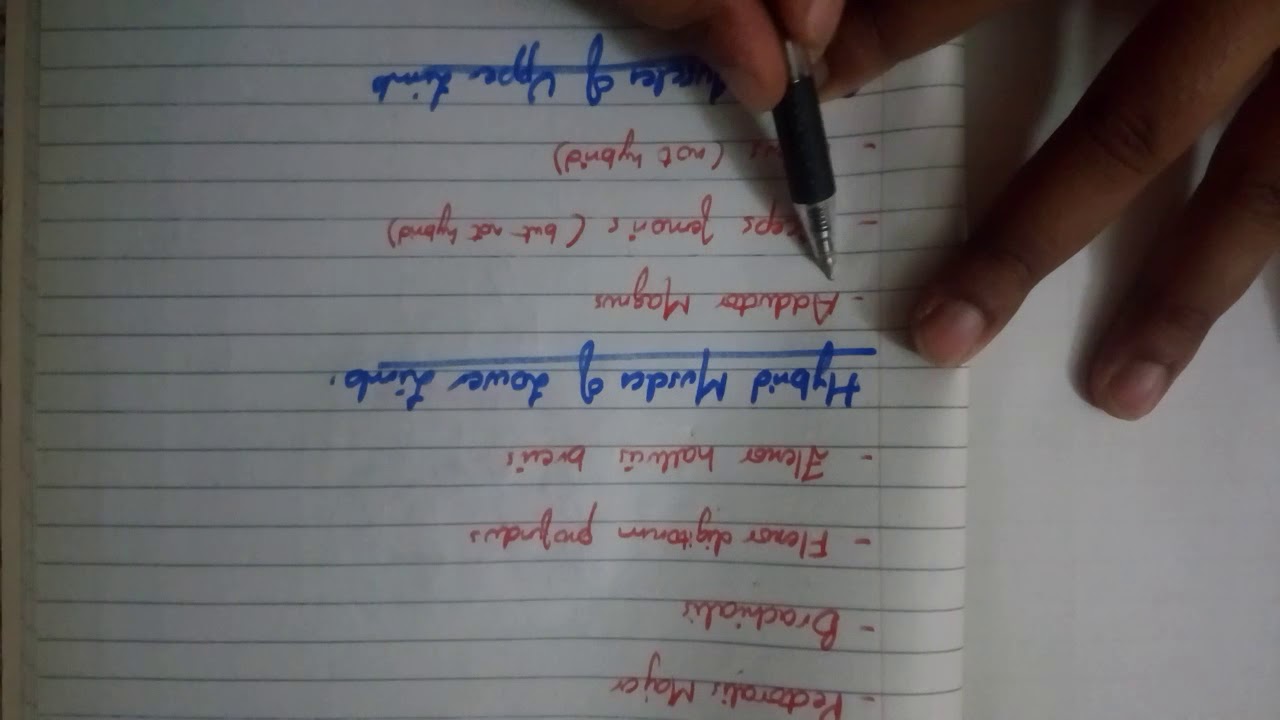 - Pectoralis Major
- Brachialis
- Flexor digitorum profundus
- Flexor hallucis brevis
Hybrid Muscles of Lower Limb.
- Adductor Magnus
- femoris (but not hybrid)
- (not hybrid)
of Upper Limb